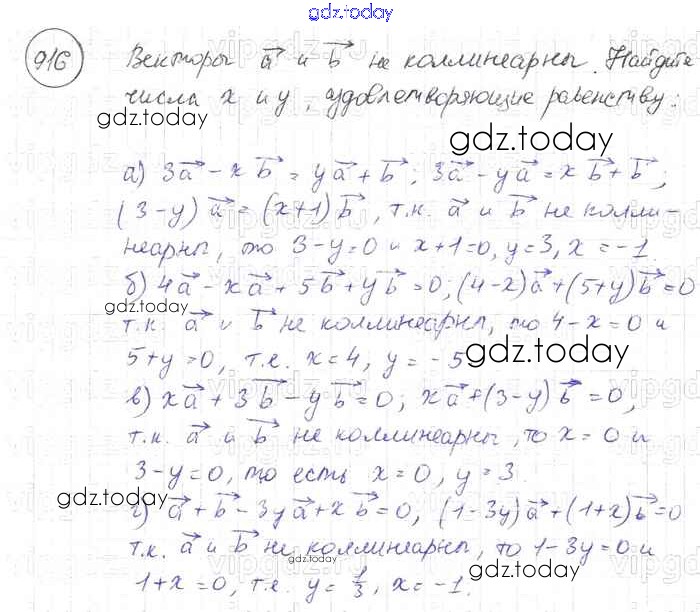 gdz.today
916
Векторы a⃗ и b⃗ не коллинеарны. Найдите
числа x и y, удовлетворяющие равенству:
gdz.today
gdz.today
а) 3a⃗ - x b⃗ = y a⃗ + b⃗; 3a⃗ - y a⃗ = x b⃗ + b⃗;
(3-y) a⃗ = (x+1) b⃗, т.к. a⃗ и b⃗ не колли-
неарны, то 3-y=0 и x+1=0, y=3, x=-1.
б) 4a⃗ - x a⃗ + 5b⃗ + y b⃗ = 0; (4-x)a⃗ + (5+y)b⃗ = 0
gdz.today
т.к. a⃗ и b⃗ не коллинеарны, то 4-x=0 и
5+y=0, т.е. x=4, y=-5
gdz.today
в) x a⃗ + 3b⃗ - y b⃗ = 0; x a⃗ + (3-y) b⃗ = 0,
т.к. a⃗ и b⃗ не коллинеарны, то x=0 и
3-y=0, то есть x=0, y=3.
gdz.today
gdz.today
г) a⃗ + b⃗ - 3y a⃗ + x b⃗ = 0; (1-3y)a⃗ + (1+x)b⃗ = 0
т.к. a⃗ и b⃗ не коллинеарны, то 1-3y=0 и
1+x=0, т.е. y=1/3, x=-1.
gdz.today